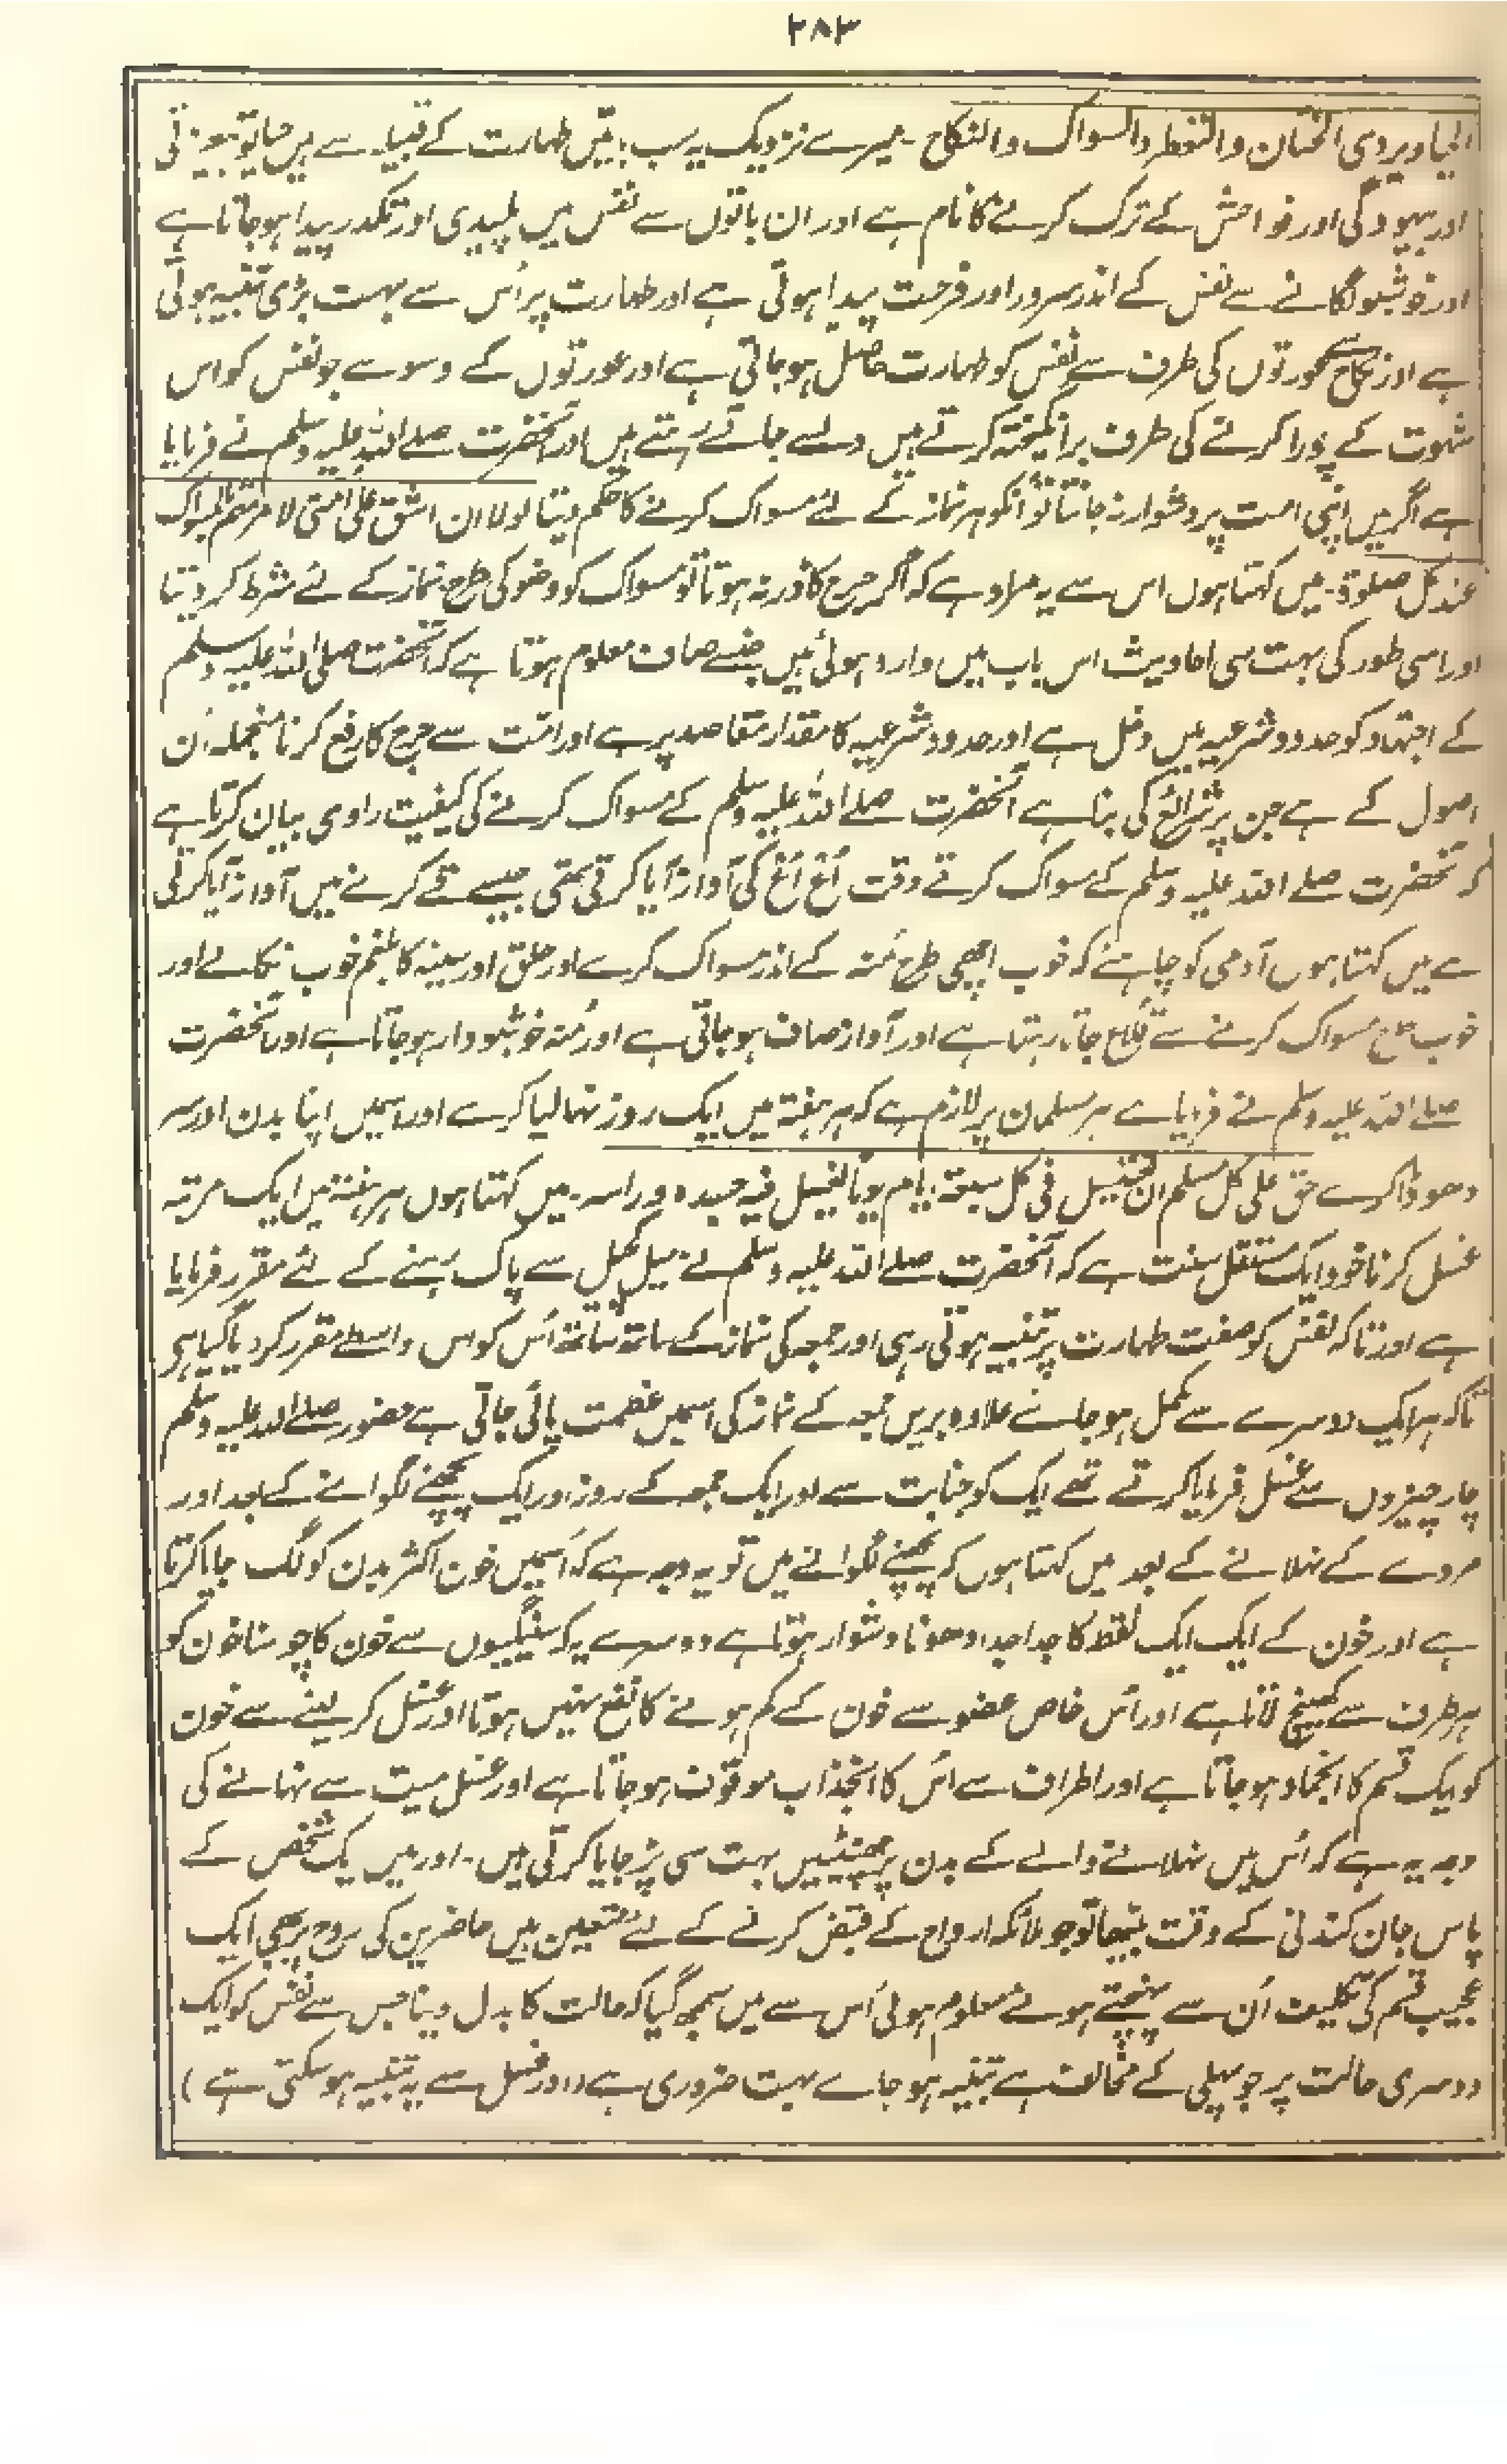 ۲۸۳
الحیاء ویروی الختان والتعطر والسواک والنکاح۔ میرے نزدیک یہ سب باتیں طہارت کے قبیلہ سے ہیں حیا تو بیعزتی
اور بیہودگی اور فواحش کے ترک کرنے کا نام ہے اور ان باتوں سے نفس میں پلیدی اور تکدر پیدا ہوجاتا ہے
اور خوشبو لگانے سے نفس کے اندر سرور اور فرحت پیدا ہوتی ہے اور طہارت پر اُس سے بہت بڑی تنبیہ ہوتی
ہے اور نکاح سے عورتوں کی طرف سے نفس کو طہارت حاصل ہوجاتی ہے اور عورتوں کے وسوسے جو نفس کو اس
شہوت کے پورا کرنے کی طرف برانگیختہ کرتے ہیں دلسے جاتے رہتے ہیں اور آنحضرت صلے اللہ علیہ وسلم نے فرمایا
ہے اگر میں اپنی امت پر دشوار نہ جانتا تو انکو ہر نماز کے لئے مسواک کرنے کا حکم دیتا لولا ان اشق علی امتی لامرتہم بالسواک
عند کل صلوۃ۔ میں کہتا ہوں اس سے یہ مراد ہے کہ اگر حرج کا ڈر نہ ہوتا تو مسواک کو وضو کی طرح نماز کے لئے شرط کر دیتا
اور اسی طور کی بہت سی احادیث اس باب میں وارد ہوئی ہیں جنسے صاف معلوم ہوتا ہے کہ آنحضرت صلی اللہ علیہ وسلم
کے اجتہاد کو حدود شرعیہ میں دخل ہے اور حدود شرعیہ کا مقدار مقاصد پر ہے اور امت سے حرج کا رفع کرنا منجملہ اُن
اصول کے ہے جن پر شرائع کی بنا ہے آنحضرت صلے اللہ علیہ وسلم کے مسواک کرنے کی کیفیت راوی بیان کرتا ہے
کہ آنحضرت صلے اللہ علیہ وسلم کے مسواک کرتے وقت اُغ اُغ کی آواز آیا کرتی تھی جیسے قے کرنے میں آواز آیا کرتی
ہے میں کہتا ہوں آدمی کو چاہئے کہ خوب اچھی طرح مُنہ کے اندر مسواک کرے اور حلق اور سینہ کا بلغم خوب نکالے اور
خوب طرح مسواک کرنے سے قلاع جاتا رہتا ہے اور آواز صاف ہوجاتی ہے اور مُنہ خوشبودار ہوجاتا ہے اور آنحضرت
صلے اللہ علیہ وسلم نے فرمایا ہے ہر مسلمان پر لازم ہے کہ ہر ہفتہ میں ایک روز نہا لیا کرے اور اسمیں اپنا بدن اور سر
دھویا کرے حق علی کل مسلم ان یغتسل فی کل سبعۃ ایام یوما یغسل فیہ جسدہ وراسہ۔ میں کہتا ہوں ہر ہفتہ میں ایک مرتبہ
غسل کرنا خود ایک مستقل سنت ہے کہ آنحضرت صلے اللہ علیہ وسلم نے میل کچیل سے پاک رہنے کے لئے مقرر فرمایا
ہے اور تاکہ نفس کو صفت طہارت پر تنبیہ ہوتی رہی اور جمعہ کی نماز کے ساتہ ساتہ اُس کو اس واسطے مقرر کر دیا گیا ہی
تاکہ ہر ایک دوسرے سے مکمل ہوجائے علاوہ بریں جمعہ کے نماز کی اسمیں عظمت پائی جاتی ہے حضور صلے اللہ علیہ وسلم
چار چیزوں سے غسل فرمایا کرتے تھے ایک کو جنابت سے اور ایک جمعہ کے روز اور ایک پچھنے لگوانے کے بعد اور
مردے کے نہلانے کے بعد میں کہتا ہوں کہ پچھنے لگوانے میں تو یہ وجہ ہے کہ اسمیں خون اکثر بدن کو لگ جایا کرتا
ہے اور خون کے ایک ایک نقطہ کا جدا جدا دھونا دشوار ہوتا ہے دوسرے یہ کہ سینگیوں سے خون کا چوسنا خون کو
ہر طرف سے کھینچ لاتا ہے اور اُس خاص عضو سے خون کے کم ہونے کا نفع نہیں ہوتا اور غسل کر لینے سے خون
کو ایک قسم کا انجماد ہوجاتا ہے اور اطراف سے اُس کا انجذاب موقوف ہوجاتا ہے اور غسل میت سے نہانے کی
وجہ یہ ہے کہ اُس میں نہلانے والے کے بدن پر چھینٹیں بہت سی پڑ جایا کرتی ہیں۔ اور میں یک شخص کے
پاس جان کندنی کے وقت بیٹھا تو جو ملائکہ ارواح کے قبض کرنے کے لئے متعین ہیں حاضرین کی روح پر بھی ایک
عجیب قسم کی تکلیف اُن سے پہنچتے ہوئے معلوم ہوئی اُس سے میں سمجھ گیا کہ حالت کا بدل دینا جس سے نفس کو ایک
دوسری حالت پر جو پہلی کے مخالف ہے تنبیہ ہوجاے بہت ضروری ہے (اور غسل سے یہ تنبیہ ہوسکتی ہے)